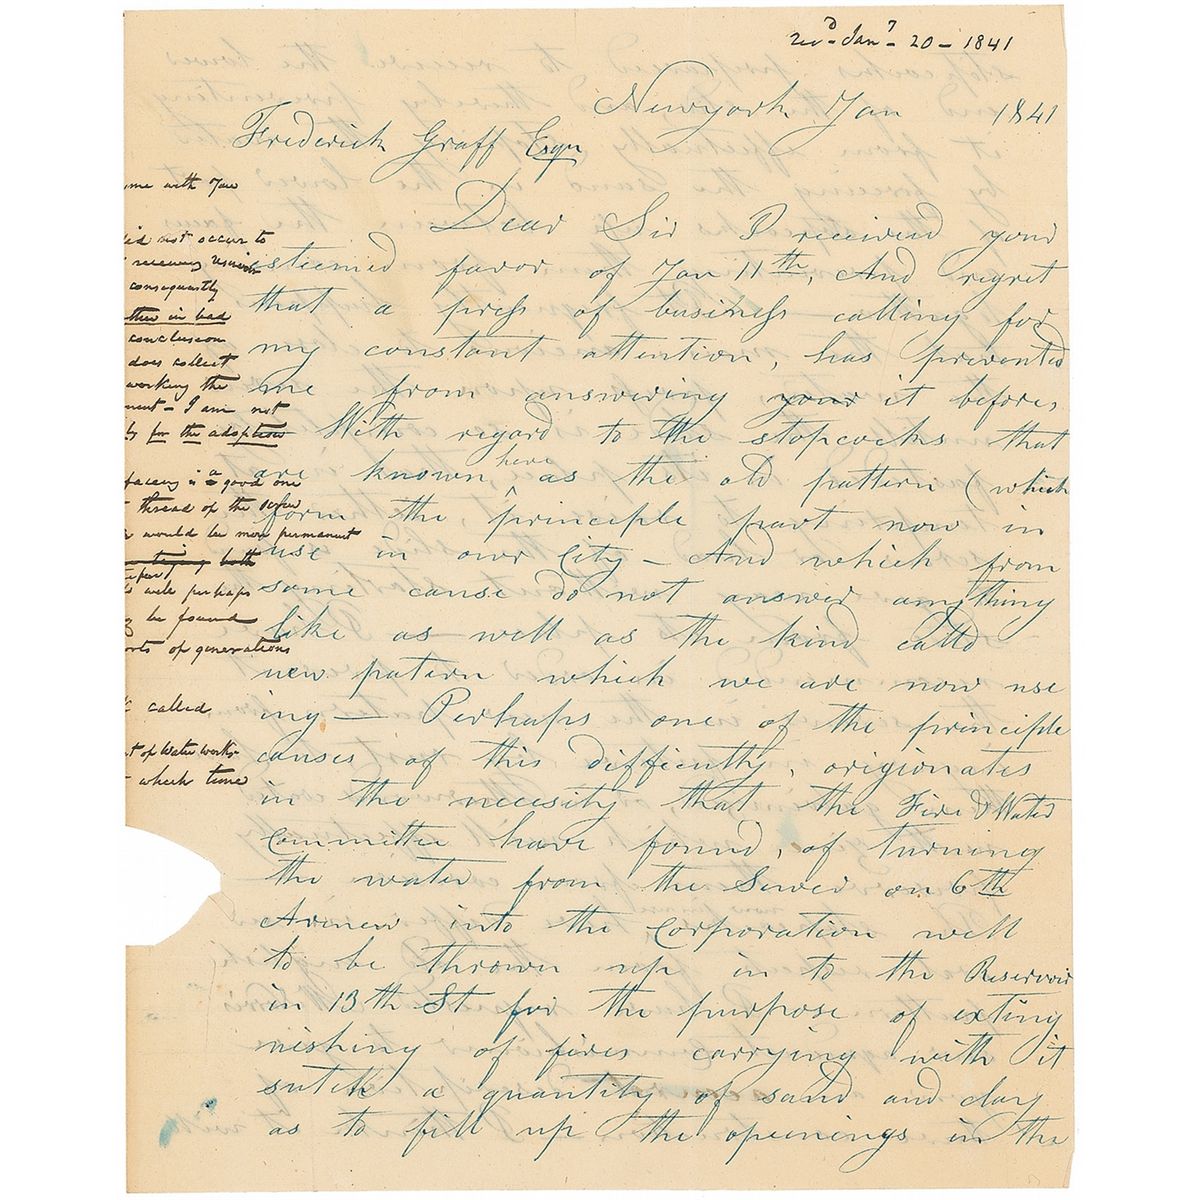 recd Jany 20 - 1841
New york Jan 1841
Frederick Graff Esqr
Dear Sir I received your
esteemed favor of Jan 11th, And regret
that a press of business calling for
my constant attention, has prevented
me from answering your it before
With regard to the stopcocks that
are known as the old pattern (which
have
form the principle part now in
use in our City - And which from
some cause do not answer anything
like as well as the kind calld
new patern which we are now use
ing — Perhaps one of the principle
causes of this difficulty, origionates
in the necesity that the Fire & Water
Committee have found, of turning
the water from the Sewer on 6th
Avenew into the Corporation well
to be thrown up in to the Reservoir
in 13th St for the purpose of exting
uishing of fires carrying with it
sutch a quantity of sand and clay
as to fill up the openings in the
me with Jaw
did not occur to
consequently
ther in bad
conclusion
does collect
working the
ment - I am not
for the adoption
facing is a good one
thread of the screw
would be more permanent
both
as well perhaps
be found
orts of generations
called
t of Water works
which time